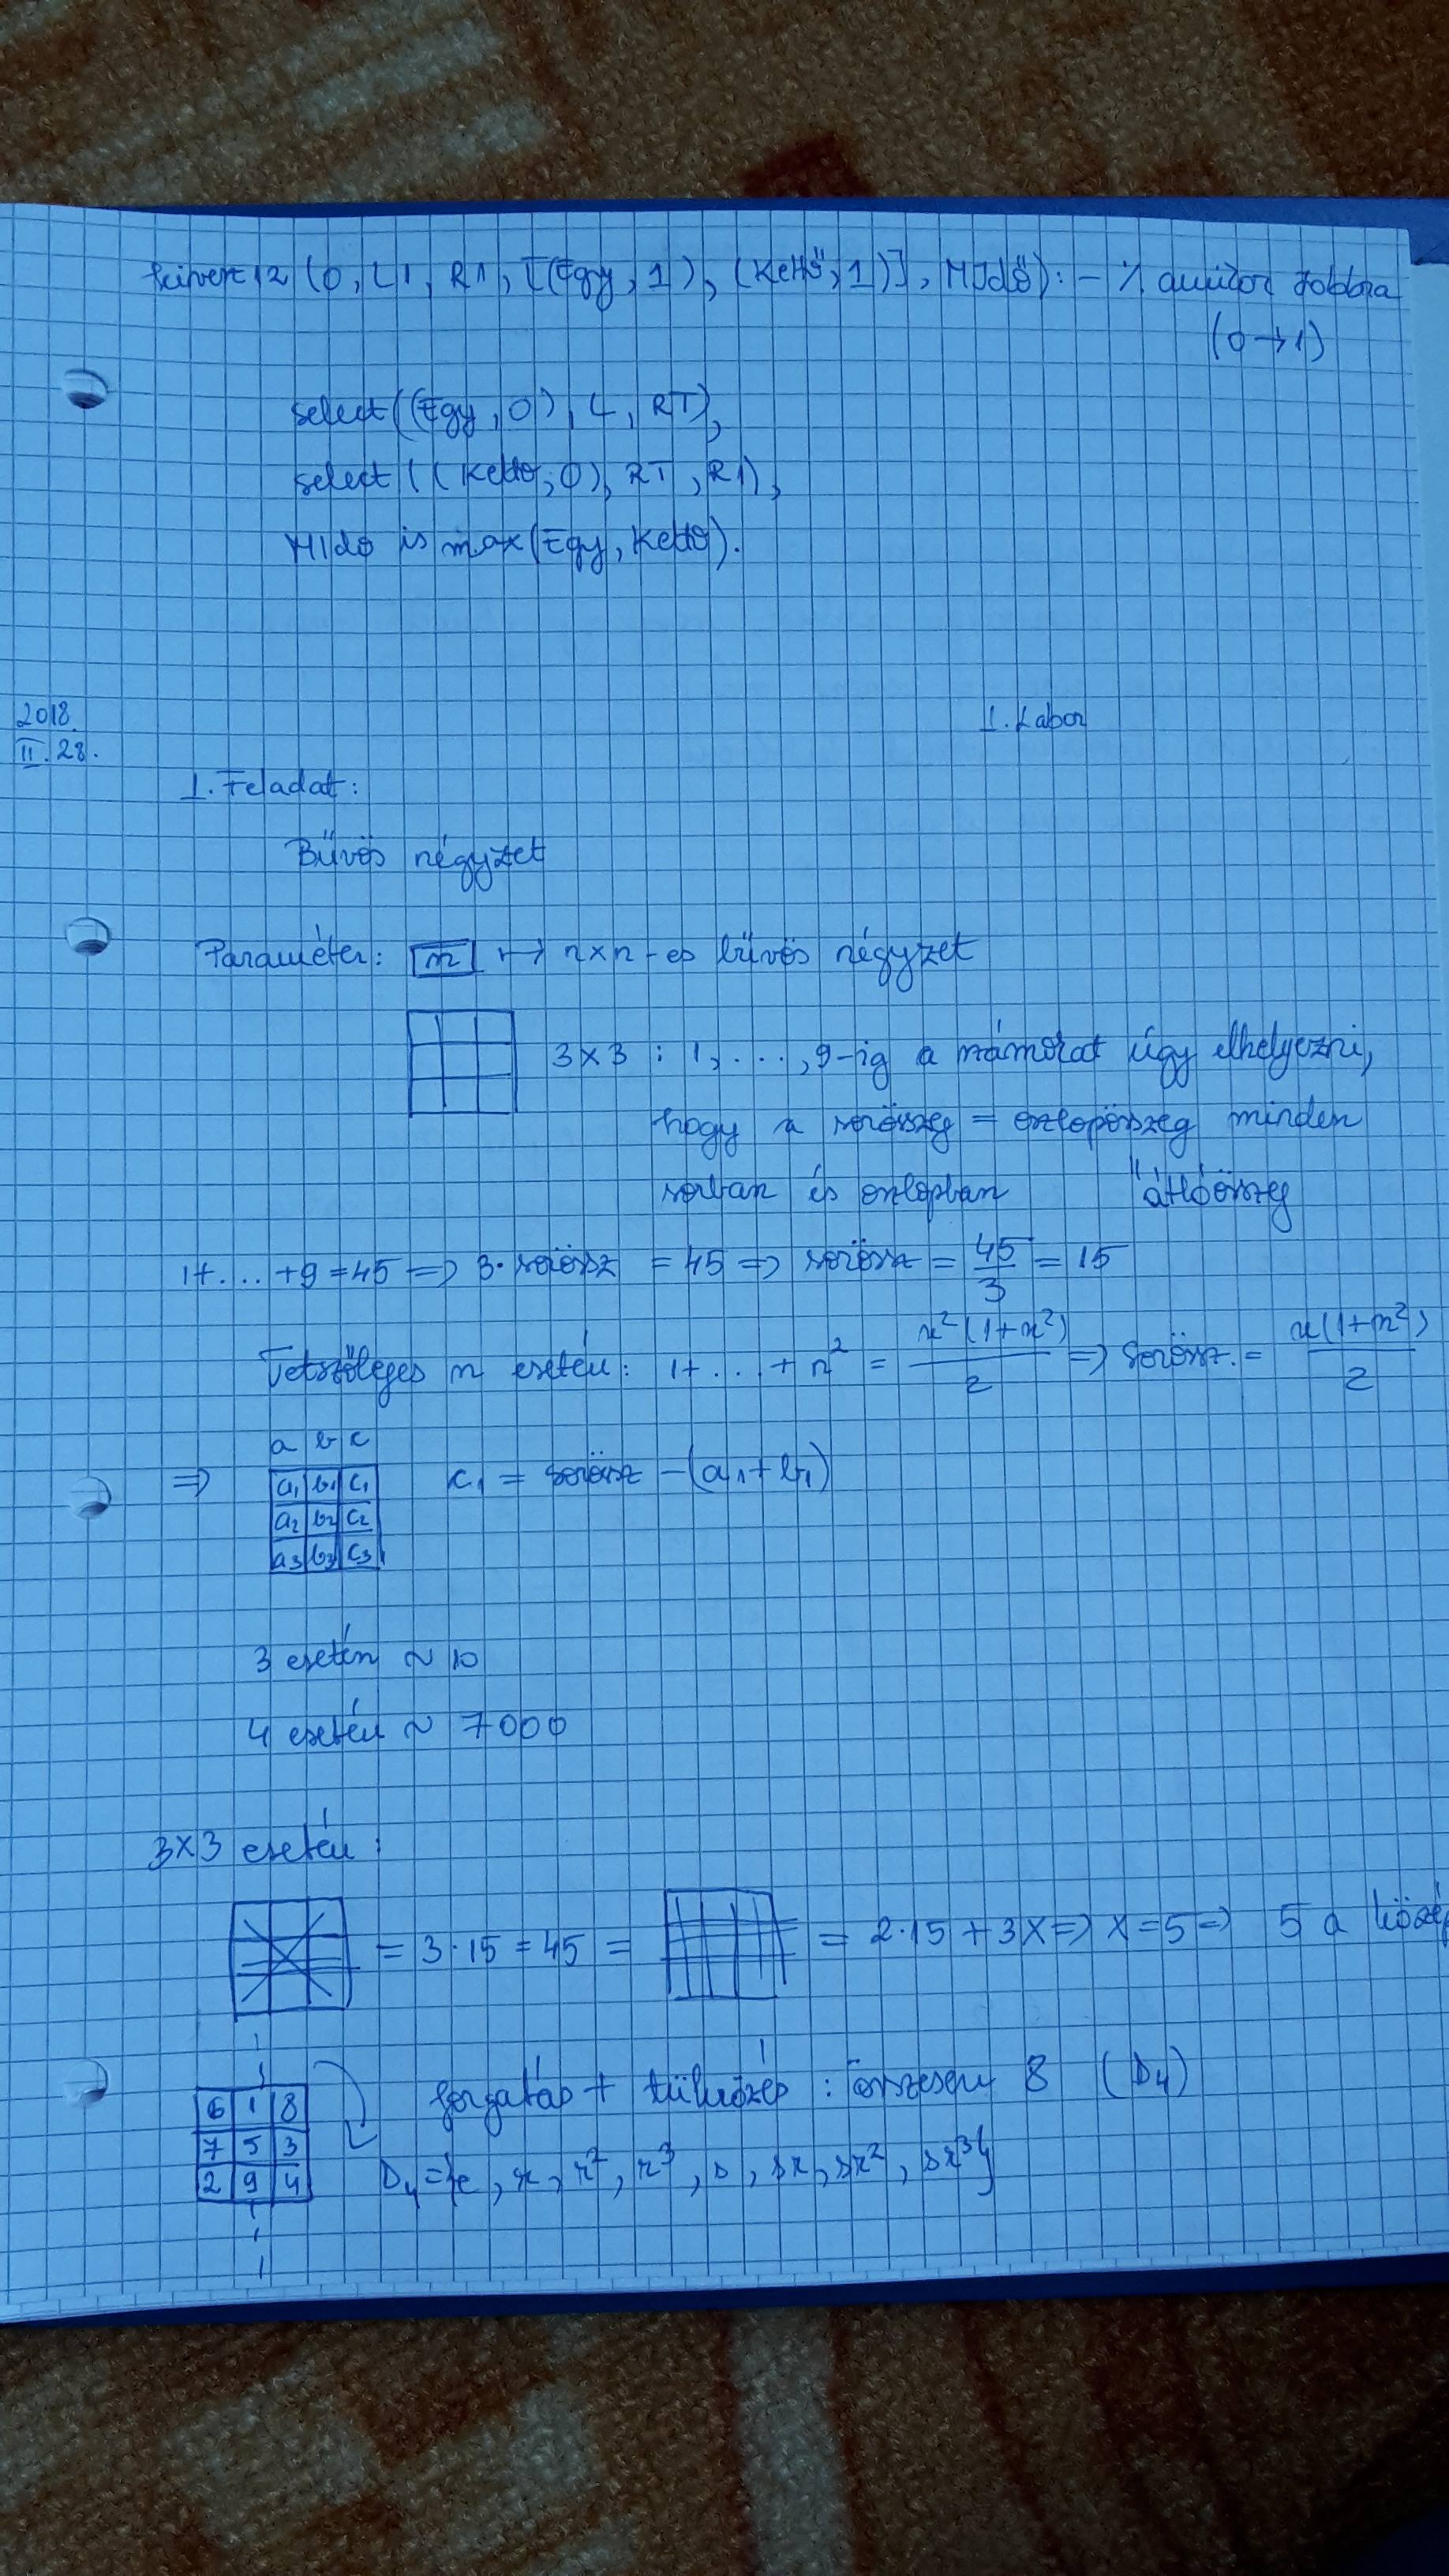 kivesz12 (0, L1, R1, [(Egy, 1), (Kettő, 1)], MIdő) :- % amikor jobbra
(0→1)
select((Egy, 0), L, RT),
select((Kettő, 0), RT, R1),
MIdő is max(Egy, Kettő).
2018.
II. 28.
1. Labor
1. Feladat:
Bűvös négyzet
Paraméter: n ↦ n×n-es bűvös négyzet
3×3 : 1, ..., 9-ig a számokat úgy elhelyezni,
hogy a sorösszeg = oszlopösszeg minden
sorban és oszlopban " átlóösszeg
1+...+9=45 => 3·sorössz = 45 => sorössz = 45/3 = 15
Tetszőleges n esetén: 1+...+n² = n²(1+n²)/2 => sorössz. = n(1+n²)/2
a b c
=> a₁ b₁ c₁ c₁ = sorössz - (a₁+b₁)
a₂ b₂ c₂
a₃ b₃ c₃
3 esetén ~ 10
4 esetén ~ 7000
3×3 esetén:
= 3·15 = 45 = = 2·15 + 3x => x=5 => 5 a közép
6 1 8
7 5 3
2 9 4
forgatás + tükrözés : összesen 8 (D₄)
D₄ = {e, r, r², r³, s, sr, sr², sr³}